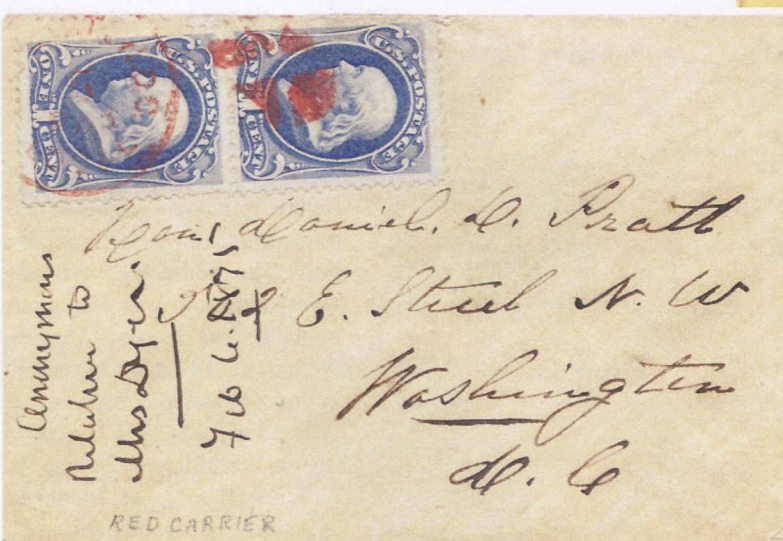 U.S. POSTAGE
ONE CENT
U.S. POSTAGE
CENT
Hon, Daniel. D. Pratt
E. Street N. W
Washington
D. C
Anonymous
to
Mrs Dyer
Feb 6. 1875
RED CARRIER